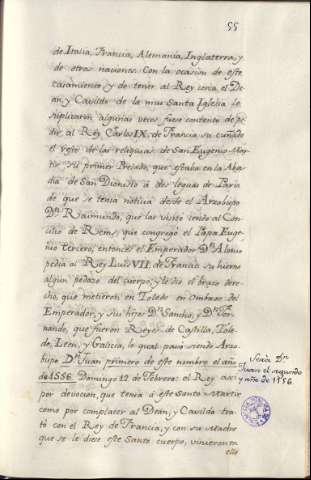 55
de Italia, Francia, Alemania, Inglaterra, y
de otras naciones. Con la ocasion de este
casamiento y de tener al Rey cerca, el De-
an y Cavildo de la mui Santa Iglesia le
suplicaron algunas veces fuese contento de pe-
dir al Rey Carlos IX. de Francia su cuñado
el resto de las reliquias de San Eugenio Mar-
tir su primer Prelado, que estaba en la Aba-
dia de San Dionisio à dos leguas de Paris
de que se tenia noticia desde el Arzobispo
Dn. Raimundo, que las visitó iendo al Con-
cilio de Rems, que congregó el Papa Euge-
nio tercero, entonces el Emperador Dn. Alonso
pedia al Rey Luis VII. de Francia su hierno
algun pedazo del cuerpo, y le dio el brazo dere-
cho, que metieron en Toledo en ombros del
Emperador, y sus hijos Dn. Sancho, y Dn. Fer-
nando, que fueron Reyes de Castilla, Tole-
do, Leon, y Galicia, lo qual pasó siendo Arzo-
bispo Dn. Juan primero de este nombre el año
de 1556. Domingo 12 de Febrero: el Rey asi
por devocion, que tenia à este Santo Martir
como por complacer al Dean, y Cavildo tra-
tó con el Rey de Francia, y con su Madre
que se le diese este Santo cuerpo, vinieron en
ello
Seria Dn.
Juan el segundo
y año de 1156.